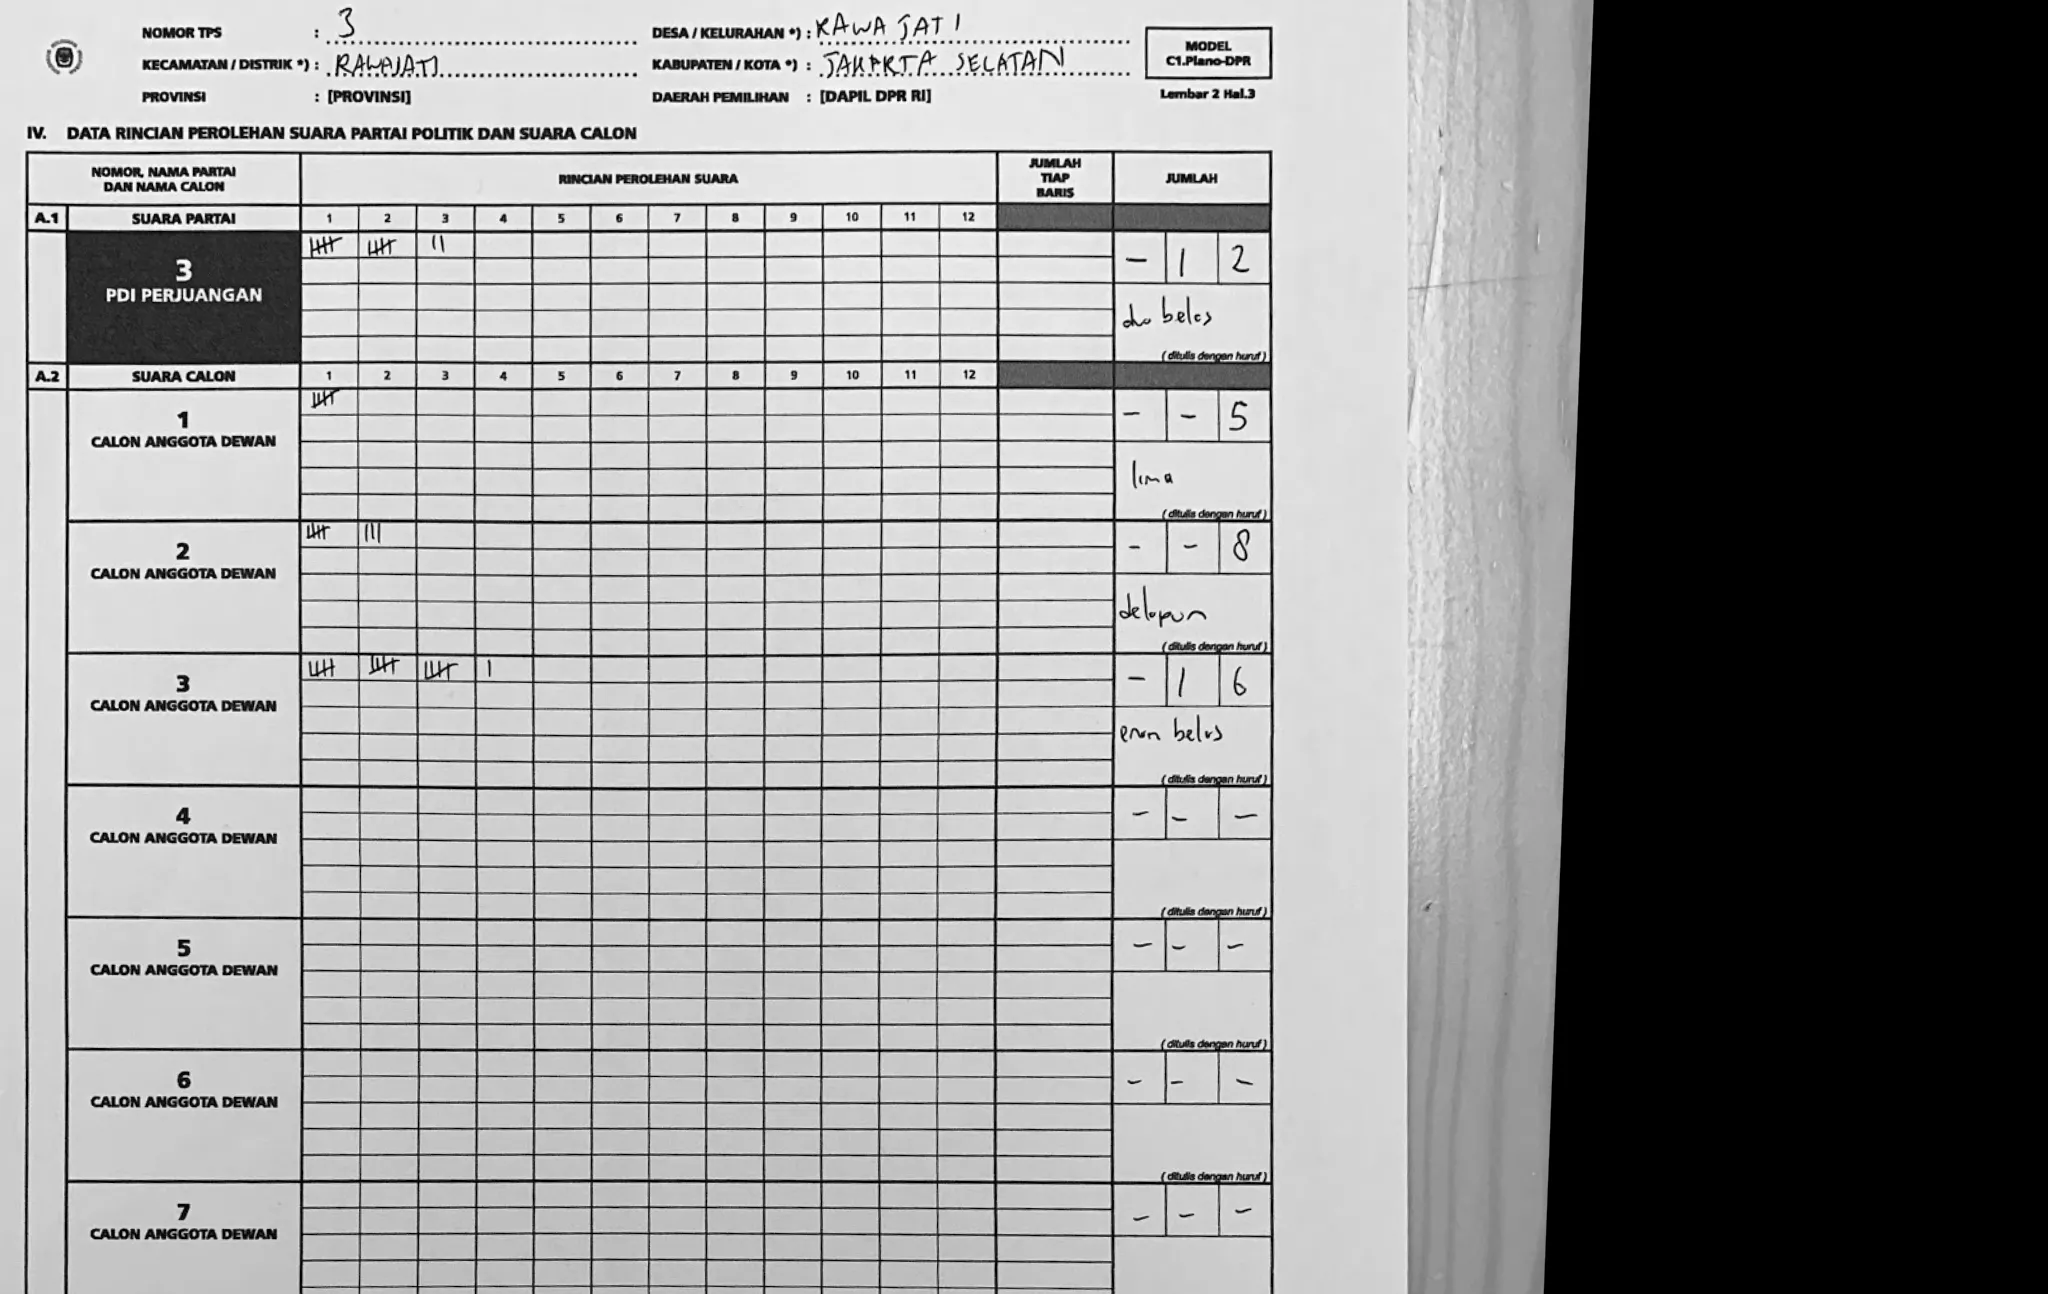 NOMOR TPS : 3 DESA / KELURAHAN *) : RAWA JATI
MODEL
C1.Plano-DPR
KECAMATAN / DISTRIK *) : RAWAJATI KABUPATEN / KOTA *) : JAKARTA SELATAN
PROVINSI : [PROVINSI] DAERAH PEMILIHAN : [DAPIL DPR RI] Lembar 2 Hal.3
IV. DATA RINCIAN PEROLEHAN SUARA PARTAI POLITIK DAN SUARA CALON
NOMOR, NAMA PARTAI
DAN NAMA CALON
RINCIAN PEROLEHAN SUARA
JUMLAH
TIAP
BARIS
JUMLAH
A.1 SUARA PARTAI 1 2 3 4 5 6 7 8 9 10 11 12
3
PDI PERJUANGAN
- 1 2
dua belas
( ditulis dengan huruf )
A.2 SUARA CALON 1 2 3 4 5 6 7 8 9 10 11 12
1
CALON ANGGOTA DEWAN
- - 5
lima
( ditulis dengan huruf )
2
CALON ANGGOTA DEWAN
- - 8
delapan
( ditulis dengan huruf )
3
CALON ANGGOTA DEWAN
- 1 6
enam belas
( ditulis dengan huruf )
4
CALON ANGGOTA DEWAN
- - -
( ditulis dengan huruf )
5
CALON ANGGOTA DEWAN
- - -
( ditulis dengan huruf )
6
CALON ANGGOTA DEWAN
- - -
( ditulis dengan huruf )
7
CALON ANGGOTA DEWAN
- - -